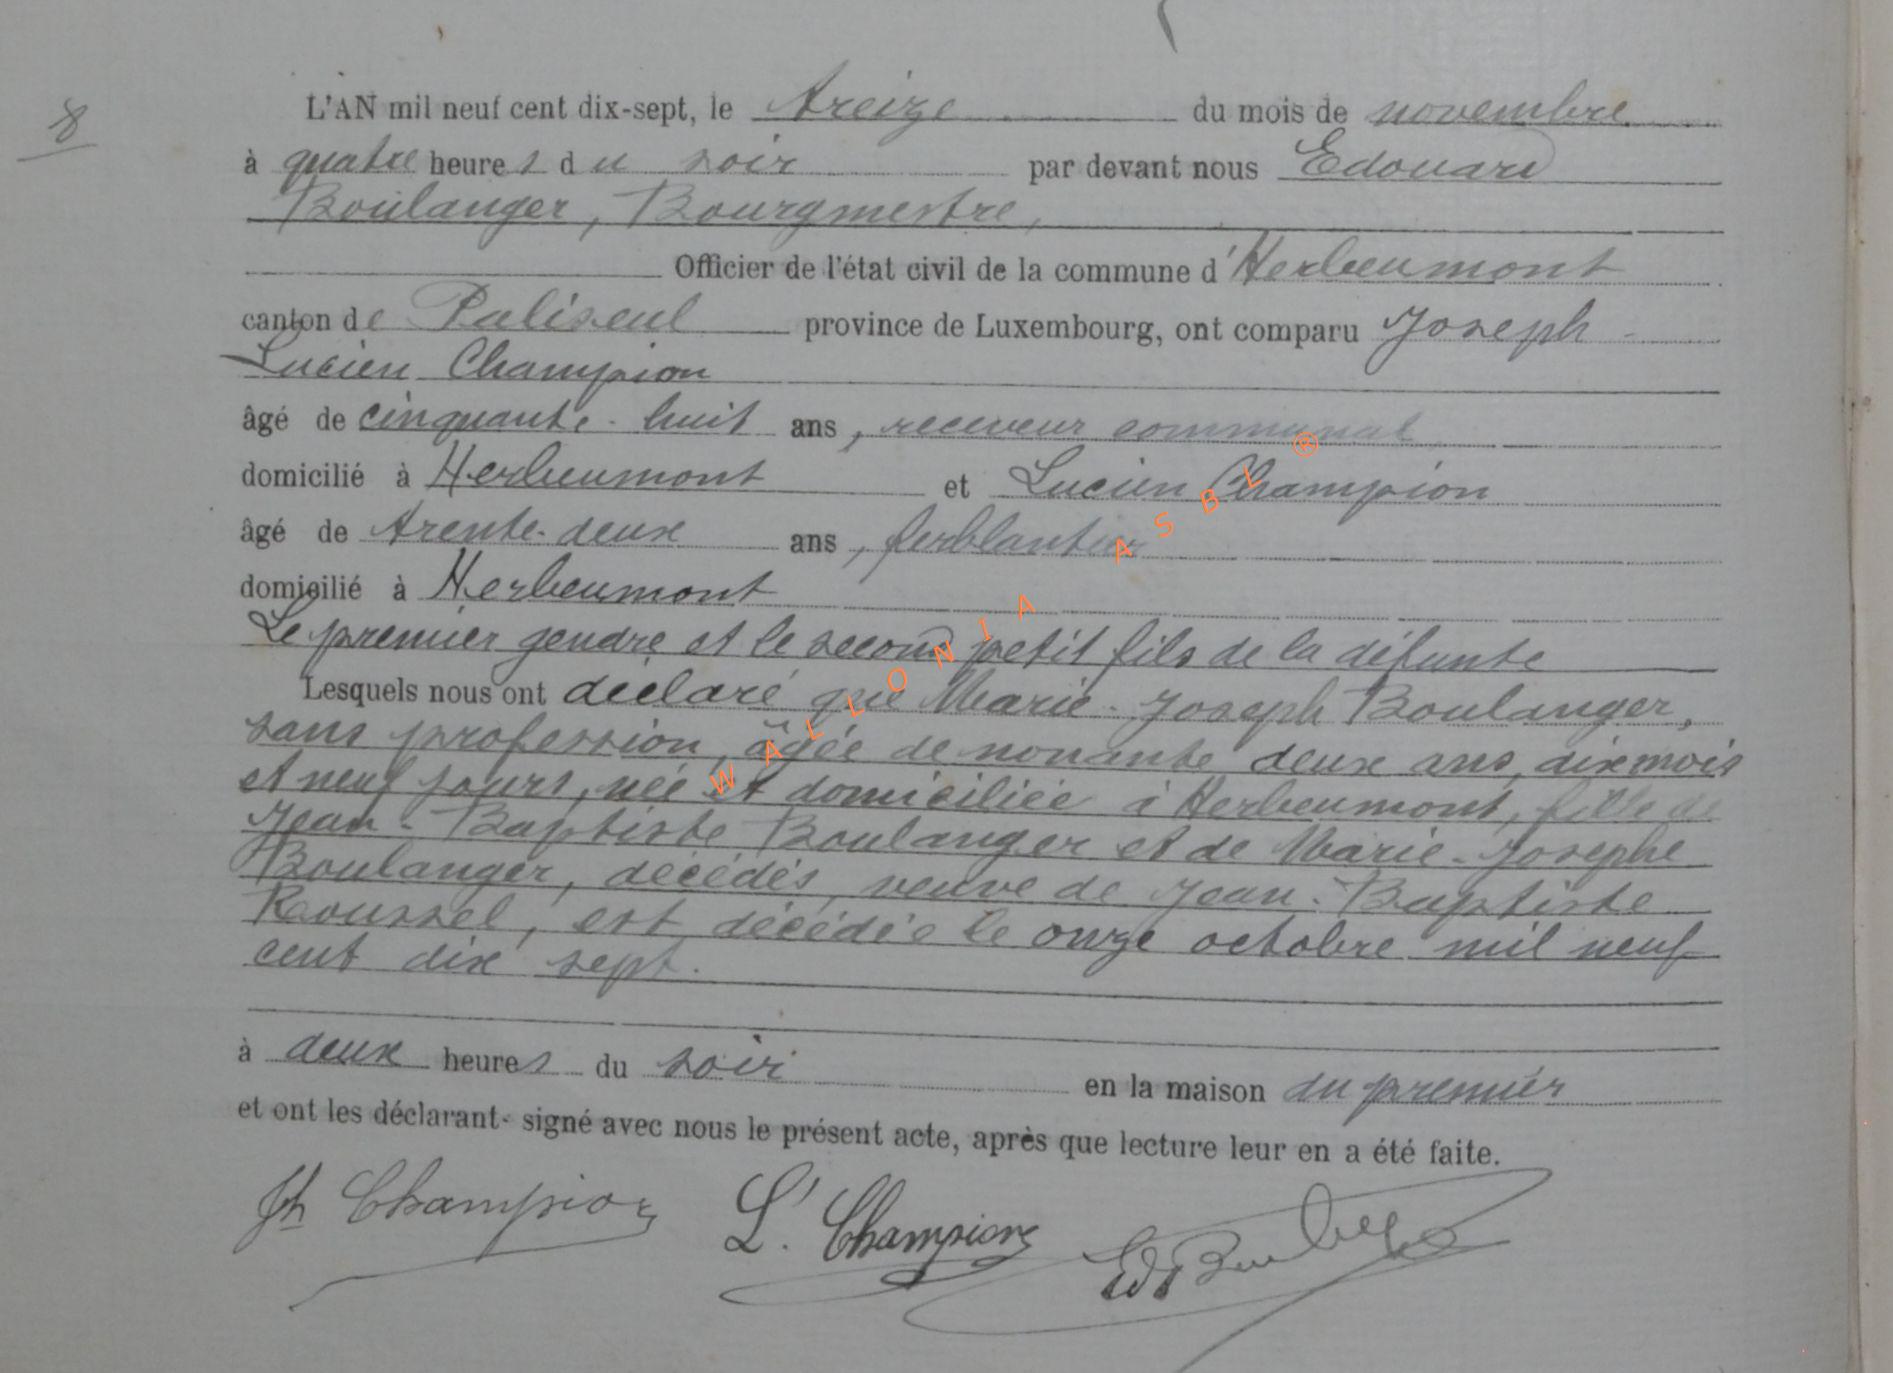 8
L'AN mil neuf cent dix-sept, le treize du mois de novembre
à quatre heures du soir par devant nous Edouard
Boulanger, Bourgmestre,
Officier de l'état civil de la commune d'Herbeumont
canton de Paliseul province de Luxembourg, ont comparu Joseph
Lucien Champion
âgé de cinquante-huit ans, receveur communal
domicilié à Herbeumont et Lucien Champion
âgé de trente-deux ans, ferblantier
domicilié à Herbeumont
Le premier gendre et le second petit fils de la défunte
Lesquels nous ont déclaré que Marie-Joseph Boulanger,
sans profession, âgée de nonante deux ans, dix mois
et neuf jours, née et domiciliée à Herbeumont, fille de
Jean-Baptiste Boulanger et de Marie-Josephe
Boulanger, décédés, veuve de Jean-Baptiste
Roussel, est décédée le onze octobre mil neuf
cent dix sept.
à deux heures du soir en la maison du premier
et ont les déclarant- signé avec nous le présent acte, après que lecture leur en a été faite.
Jh Champion L. Champion Ed Boulanger
WALLONIA ASBL ®